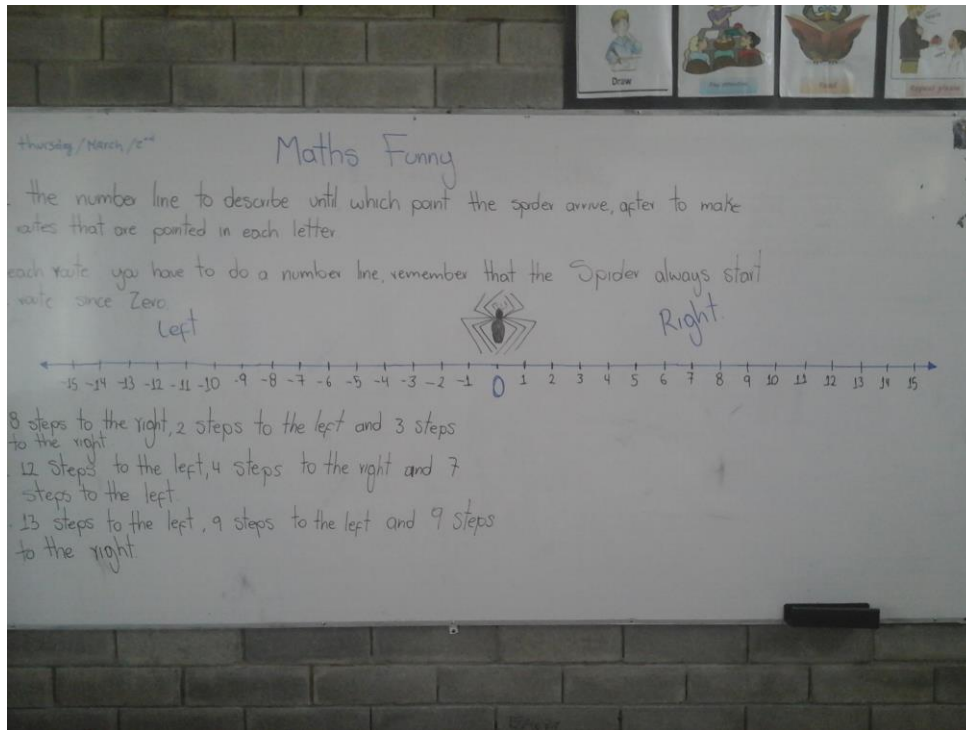 Draw
Read
thursday/March/2nd
Maths Funny
the number line to describe until which point the spider arrive, after to make
routes that are pointed in each letter
each route you have to do a number line, remember that the Spider always start
route since Zero.
Left
Right.
-15 -14 -13 -12 -11 -10 -9 -8 -7 -6 -5 -4 -3 -2 -1 0 1 2 3 4 5 6 7 8 9 10 11 12 13 14 15
8 steps to the right, 2 steps to the left and 3 steps
to the right
12 steps to the left, 4 steps to the right and 7
steps to the left.
13 steps to the left, 9 steps to the left and 9 steps
to the right.